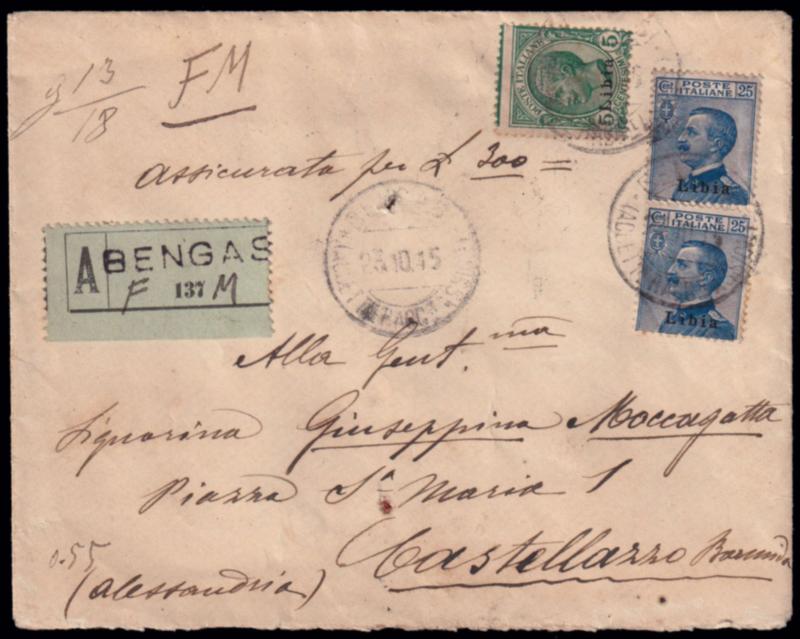 g 13/18
FM
Assicurata per £ 300 =
POSTE ITALIANE
5 Libia 5
CENTESIMI
Cent. POSTE ITALIANE 25
Libia
Cent. POSTE ITALIANE 25
Libia
BENGASI
23.10.15
A BENGAS
F 137 M
Alla Gent.ma
Signorina Giuseppina Moccagatta
Piazza Sa Maria 1
Castellazzo Bormida
0.55
(Alessandria)